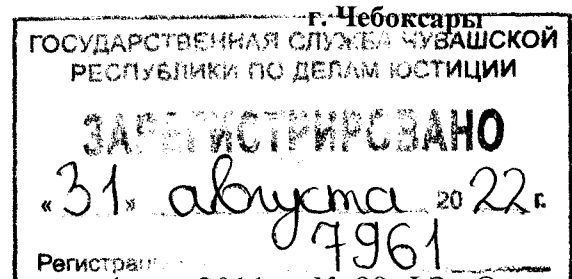 г. Чебоксары
ГОСУДАРСТВЕННАЯ СЛУЖБА ЧУВАШСКОЙ
РЕСПУБЛИКИ ПО ДЕЛАМ ЮСТИЦИИ
ЗАРЕГИСТРИРОВАНО
«31» августа 2022 г.
7961